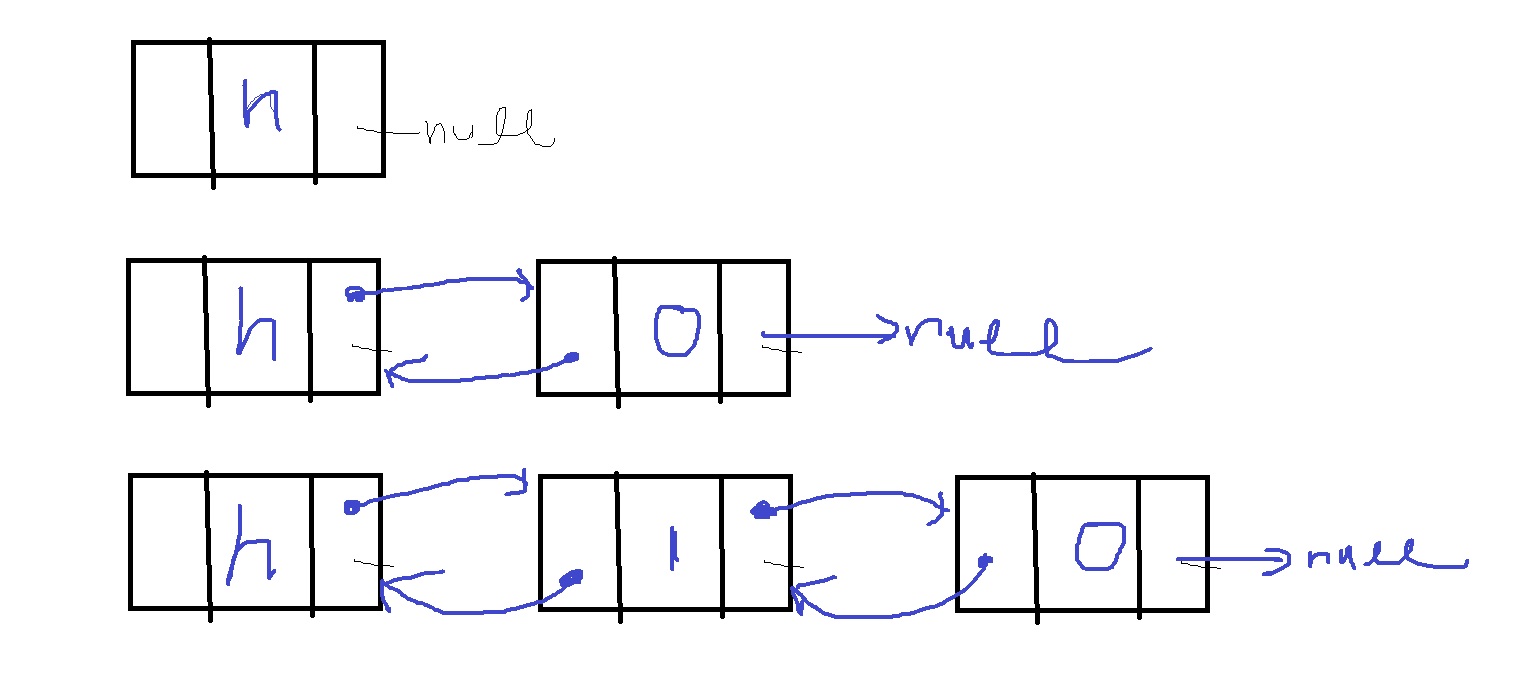 h null
h 0 null
h 1 0 null